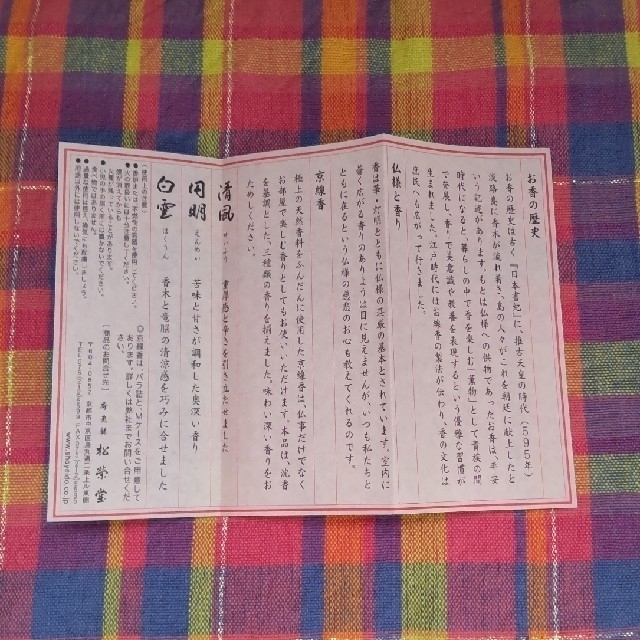 お香の歴史
お香の歴史は古く『日本書紀』に、推古天皇の時代(595年)
淡路島に香木が流れ着き、島の人々がこれを朝廷に献上したと
いう記述があります。もとは仏様への供物であったお香は、平安
時代になると、暮らしの中で香を楽しむ「薫物」として貴族の間
で発展し、香りで美意識や教養を表現するという優雅な習慣が
生まれました。江戸時代にはお線香の製法が伝わり、香の文化は
庶民へも広がって行きました。
仏様と香り
香は華・灯明とともに仏様の荘厳の基本とされています。室内に
薫く広がる香りのありようは目に見えませんが、いつも私たちと
ともに在るという仏様の慈悲のお心も教えてくれるのです。
京線香
極上の天然香料をふんだんに使用した京線香は、仏事だけでなく
お部屋で楽しむ香りとしてもお使いいただけます。本品は、沈香
を基調とした、三種類の香りを揃えました。味わい深い香りをお
ためしください。
清風 せいふう 重厚感と辛さを引き立たせました
円明 えんめい 苦味と甘さが調和した奥深い香り
白雲 はくうん 香木と竜脳の清涼感を巧みに合せました
◎京線香は、バラ詰と、Mケースをご用意して
あります。詳しくは弊社までお問い合せくだ
さい。
〔使用上の注意〕
〔商品のお問合せ先〕 香老舗 松榮堂
〒604-0857 京都市中京区烏丸通二条上ル東側
www.shoyeido.co.jp